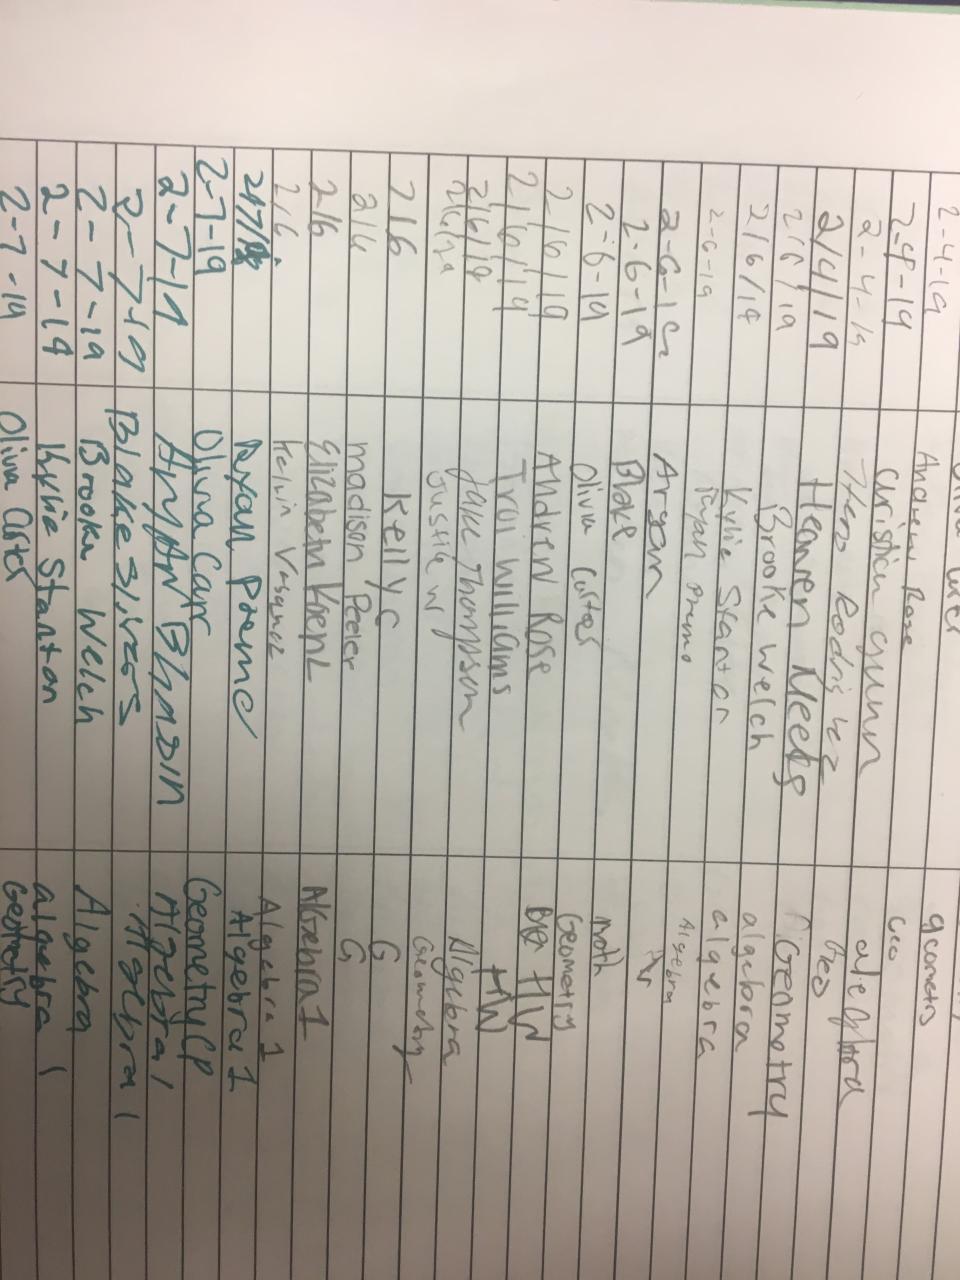 2-4-19 Andrew Rose geometry
2-4-19 Christian geo
2-4-19 algebra
2/4/19 Heaven Meeks Geo
2/6/19 Brooke Welch Geometry
2/6/19 Kylie Stanton algebra
2-6-19 Ryan algebra
2-6-19 Aryan Algebra
2-6-19 Blake
2-6-19 Olivia Carter math
2/6/19 Andrew Rose Geometry
2/6/19 Troi Williams HW
2/6/19 Jake Thompson HW
Justin W Algebra
2/6 Kelly C Geometry
2/6 madison Peeler G
2/6 Elizabeth G
2/6 Kelvin Vasquez Algebra 1
Ryan Algebra 1
2-7-19 Olivia Carr Algebra 1
2-7-19 Aryan Geometry CP
2-7-19 Blake Algebra 1
2-7-19 Brooke Welch Algebra 1
2-7-19 Kylie Stanton Algebra
2-7-19 Olivia algebra 1
Geometry